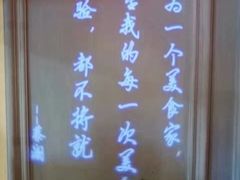 为一个美食家，
我的每一次美
验，都不将就
—蔡澜